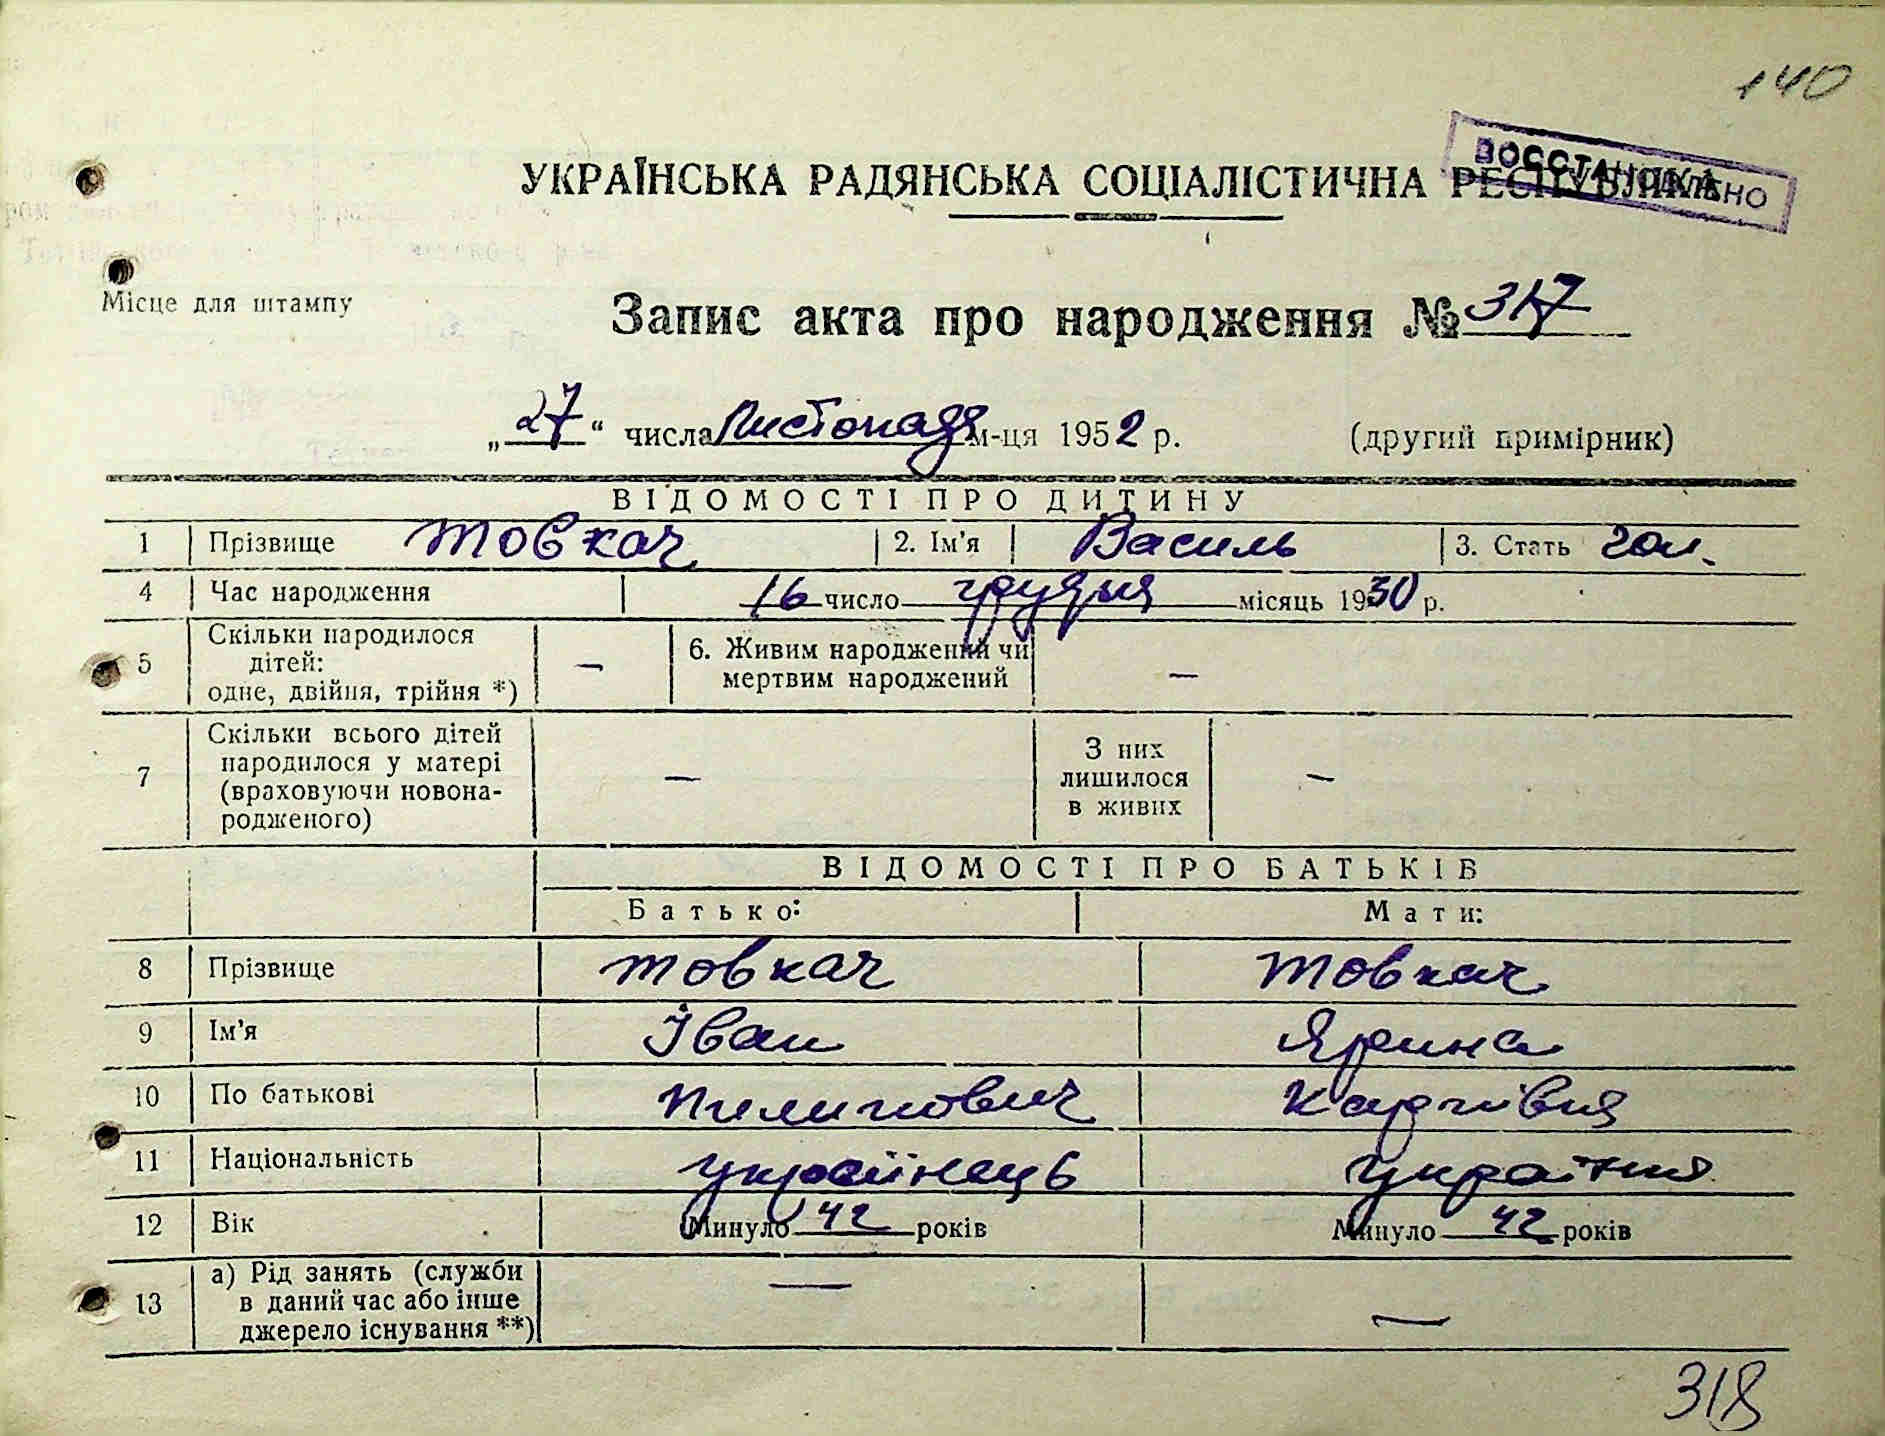 140
ВОССТАНОВЛЕНО
УКРАЇНСЬКА РАДЯНСЬКА СОЦІАЛІСТИЧНА РЕСПУБЛІКА
Місце для штампу
Запис акта про народження № 317
„27“ числа Листопада м-ця 1952 р. (другий примірник)
ВІДОМОСТІ ПРО ДИТИНУ
1 Прізвище Товкач 2. Ім'я Василь 3. Стать чол.
4 Час народження 16 число грудня місяць 1930 р.
5 Скільки народилося дітей: одне, двійня, трійня *) — 6. Живим народжений чи мертвим народжений —
7 Скільки всього дітей народилося у матері (враховуючи новона-родженого) — З них лишилося в живих —
ВІДОМОСТІ ПРО БАТЬКІВ
Батько: Мати:
8 Прізвище Товкач Товкач
9 Ім'я Іван Ярина
10 По батькові Пилипович Карпівня
11 Національність українець українка
12 Вік Минуло 42 років Минуло 42 років
13 а) Рід занять (служби в даний час або інше джерело існування **) — —
318